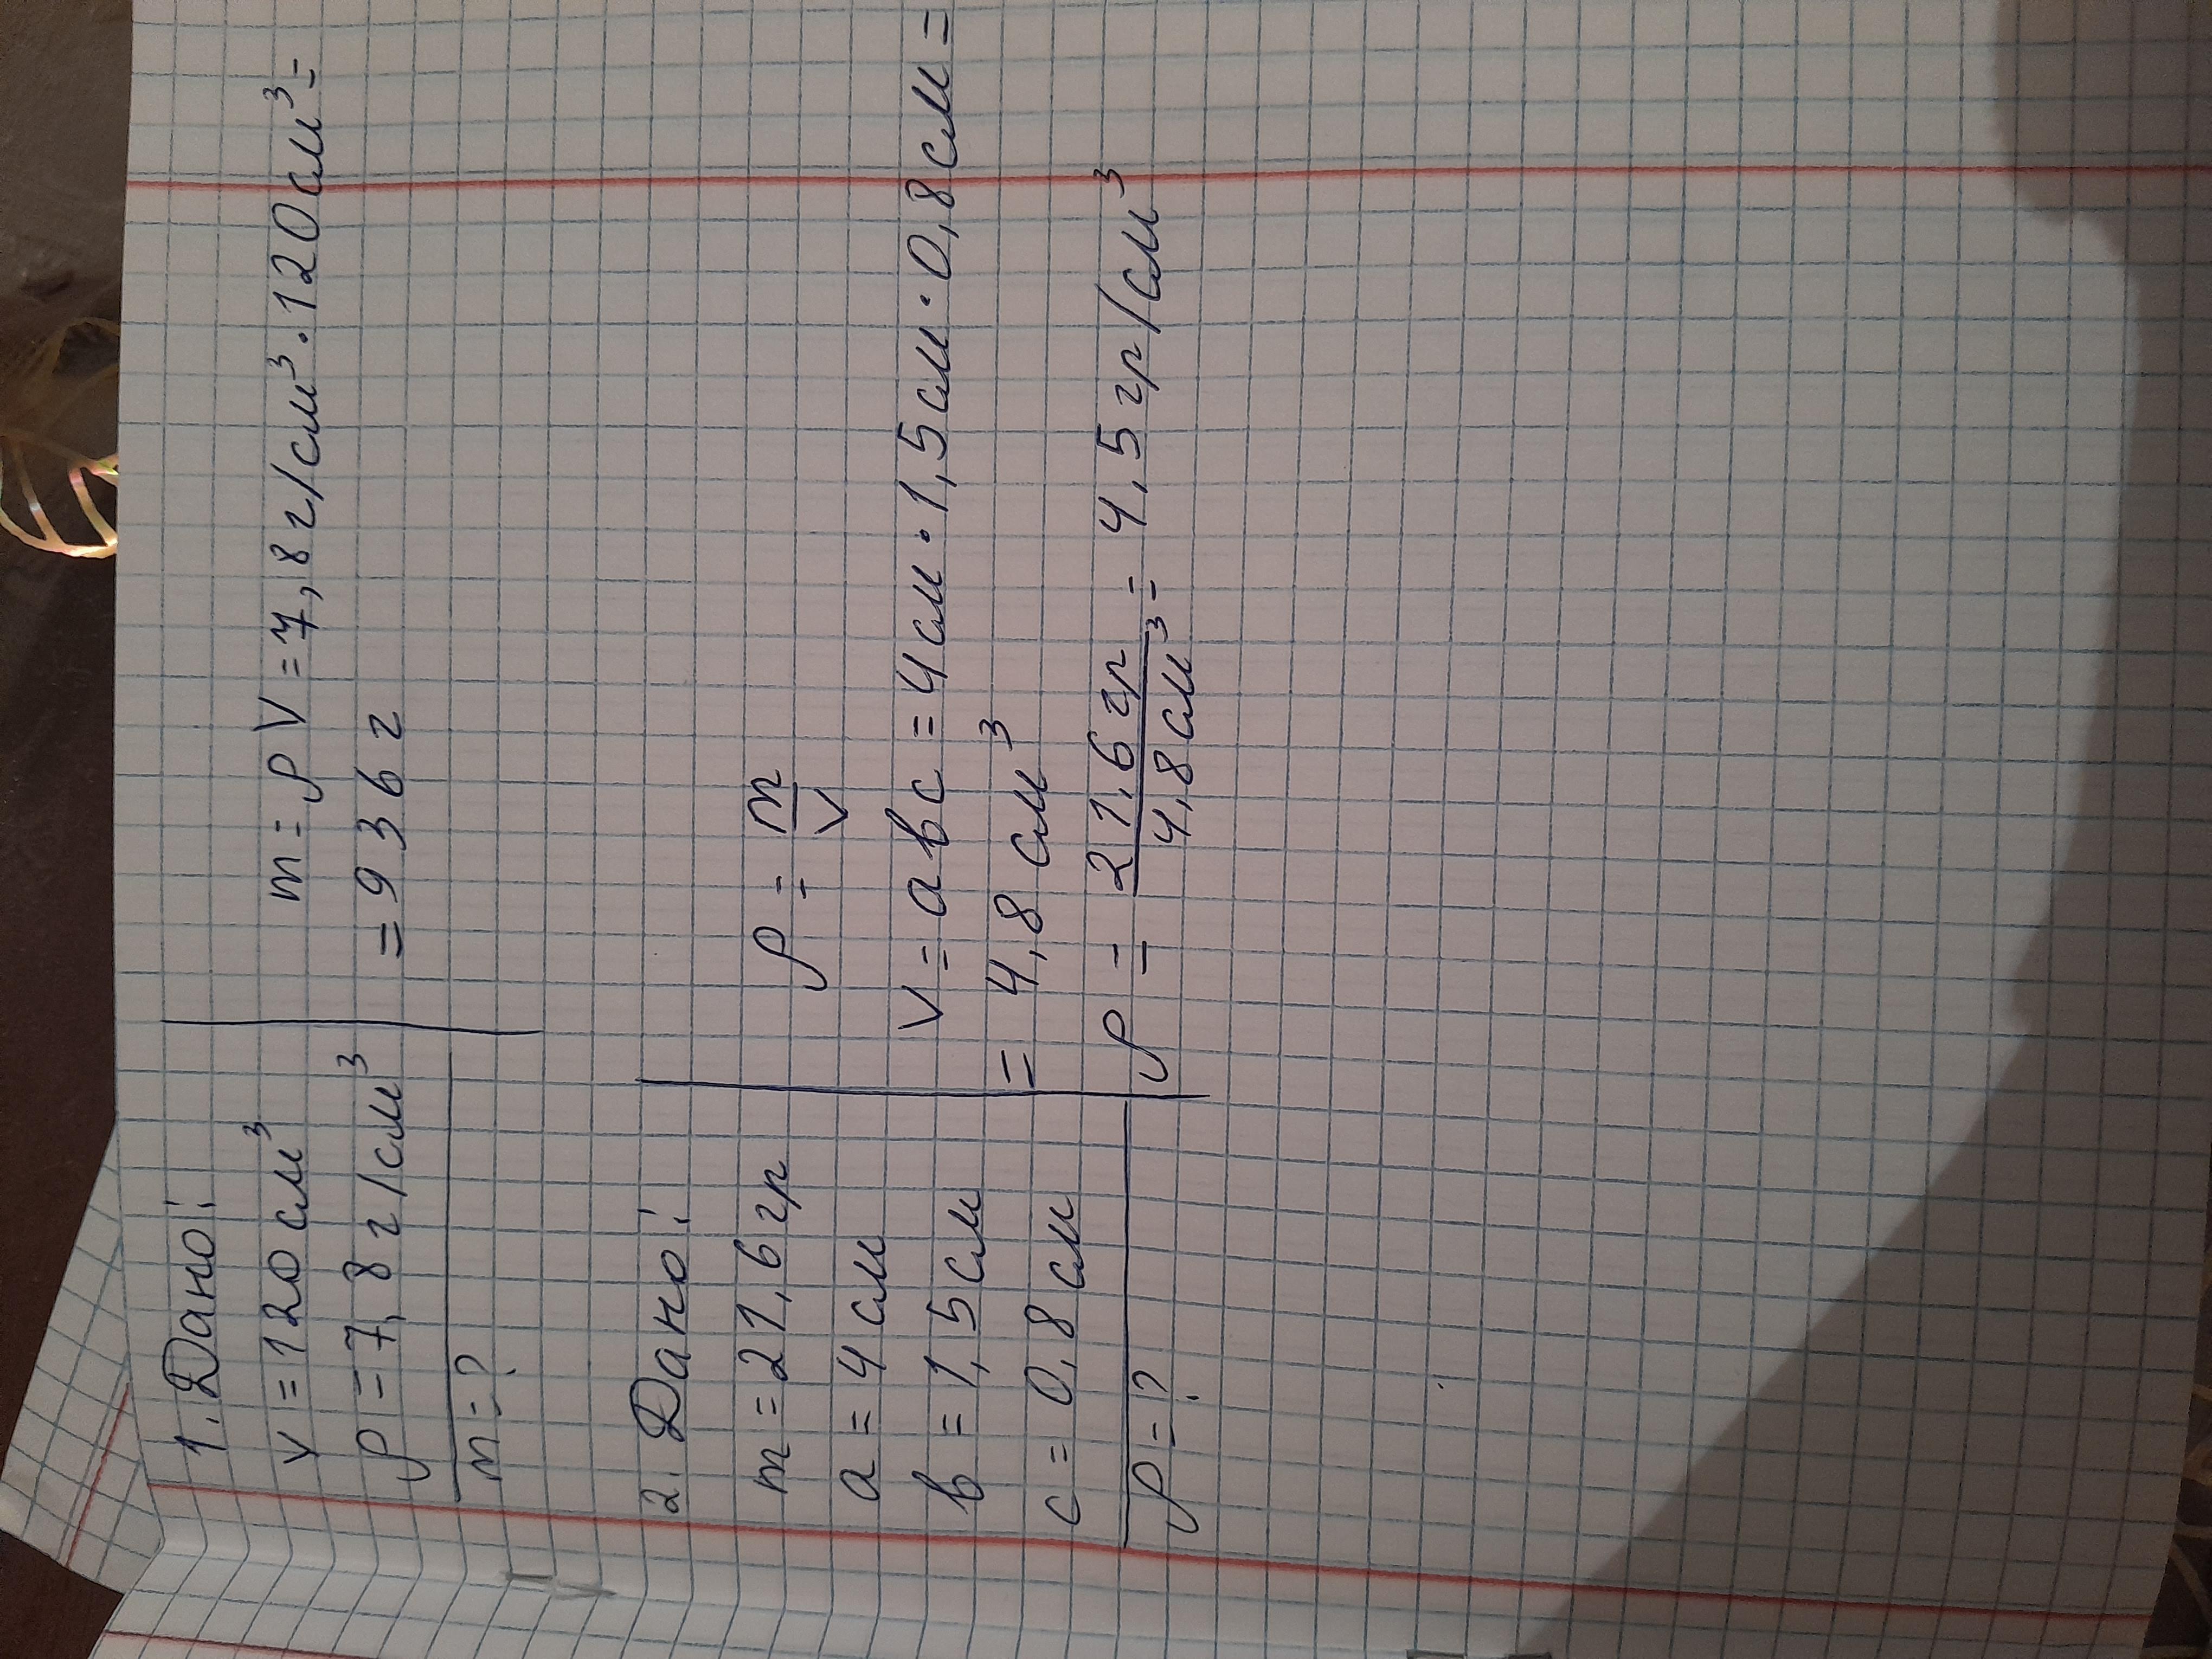 1. Дано:
v = 120 см³
ρ = 7,8 г/см³
m = ?
m = ρV = 7,8 г/см³ · 120 см³ =
= 936 г
2. Дано:
m = 21,6 гр
a = 4 см
b = 1,5 см
c = 0,8 см
ρ = ?
ρ = m/V
V = abc = 4 см · 1,5 см · 0,8 см =
= 4,8 см³
ρ = 21,6 гр/4,8 см³ = 4,5 гр/см³